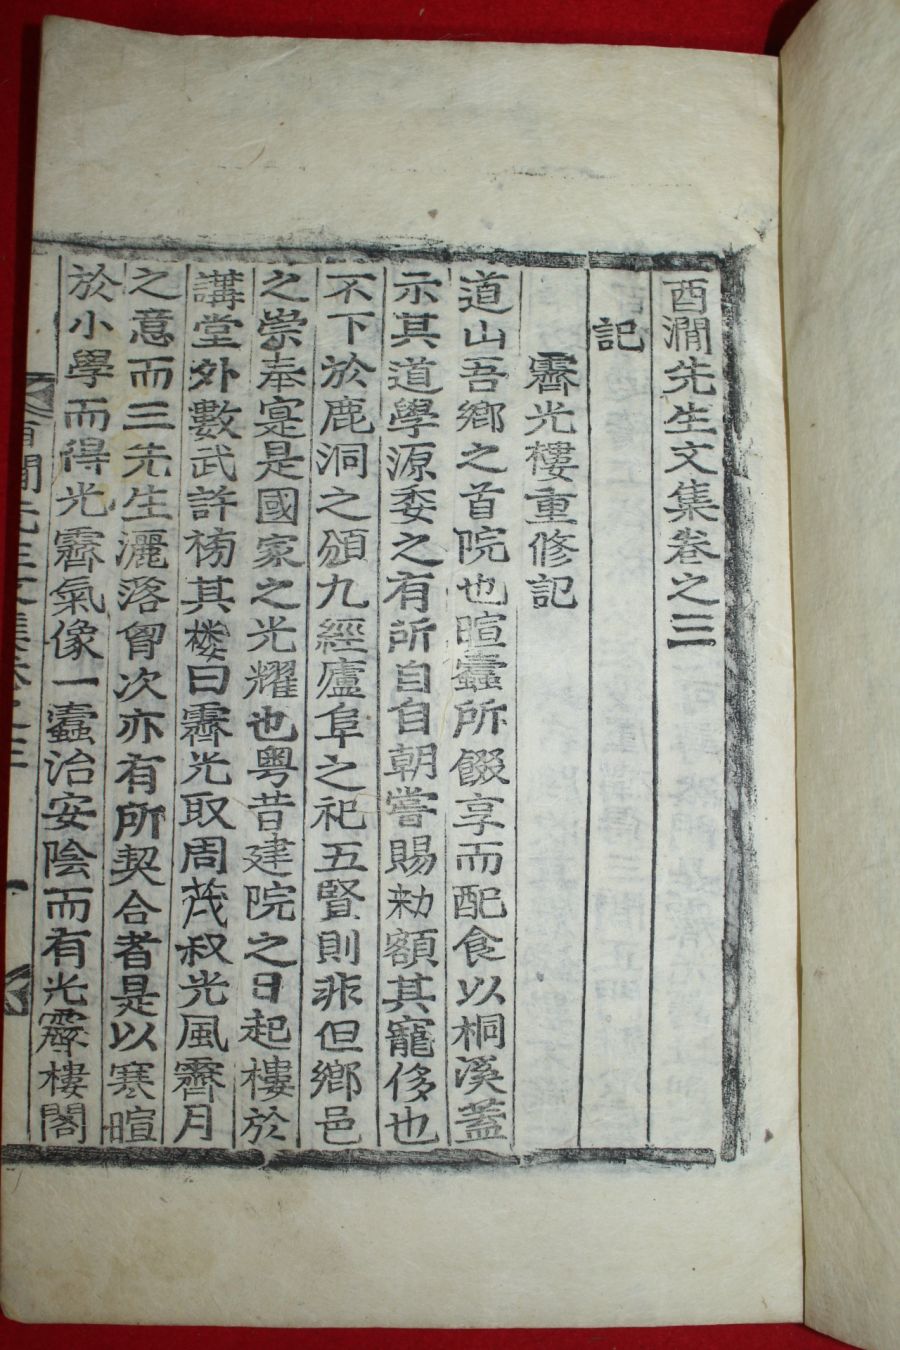 酉澗先生文集卷之三
記
霽光樓重修記
道山吾鄉之首院也暄蠹所餟享而配食以桐溪蓋
示其道學源委之有所自自朝嘗賜勑額其寵侈也
不下於鹿洞之頒九經廬阜之祀五賢則非但鄉邑
之崇奉寔是國家之光耀也粤昔建院之日起樓於
講堂外數武許牓其楼曰霽光取周茂叔光風霽月
之意而三先生灑落胷次亦有所契合者是以寒暄
於小學而得光霽氣像一蠹治安陰而有光霽樓閣